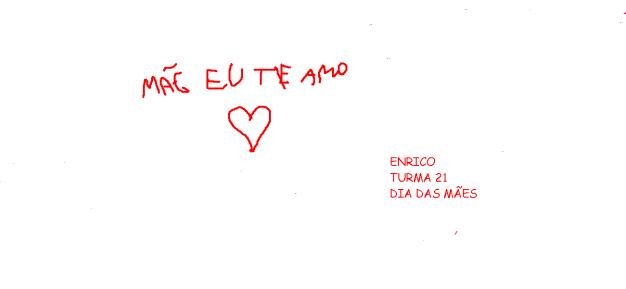 MÃE EU TE AMO
ENRICO
TURMA 21
DIA DAS MÃES